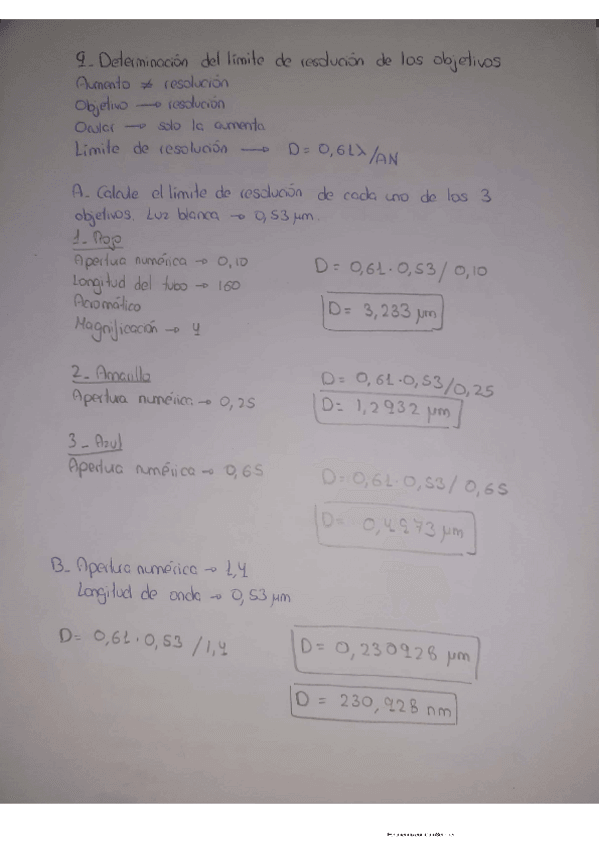 9- Determinación del límite de resolución de los objetivos
Aumento ≠ resolución
Objetivo → resolución
Ocular → solo la aumenta
Límite de resolución → D = 0,61λ/AN
A- Calcule el límite de resolución de cada uno de los 3
objetivos. Luz blanca → 0,53 μm.
1- Rojo
Apertura numérica → 0,10
Longitud del tubo → 160
Acromático
Magnificación → 4
D = 0,61·0,53/0,10
D = 3,233 μm
2- Amarillo
Apertura numérica → 0,25
D = 0,61·0,53/0,25
D = 1,2932 μm
3- Azul
Apertura numérica → 0,65
D = 0,61·0,53/0,65
D = 0,4973 μm
B- Apertura numérica → 1,4
Longitud de onda → 0,53 μm
D = 0,61·0,53/1,4
D = 0,230928 μm
D = 230,928 nm